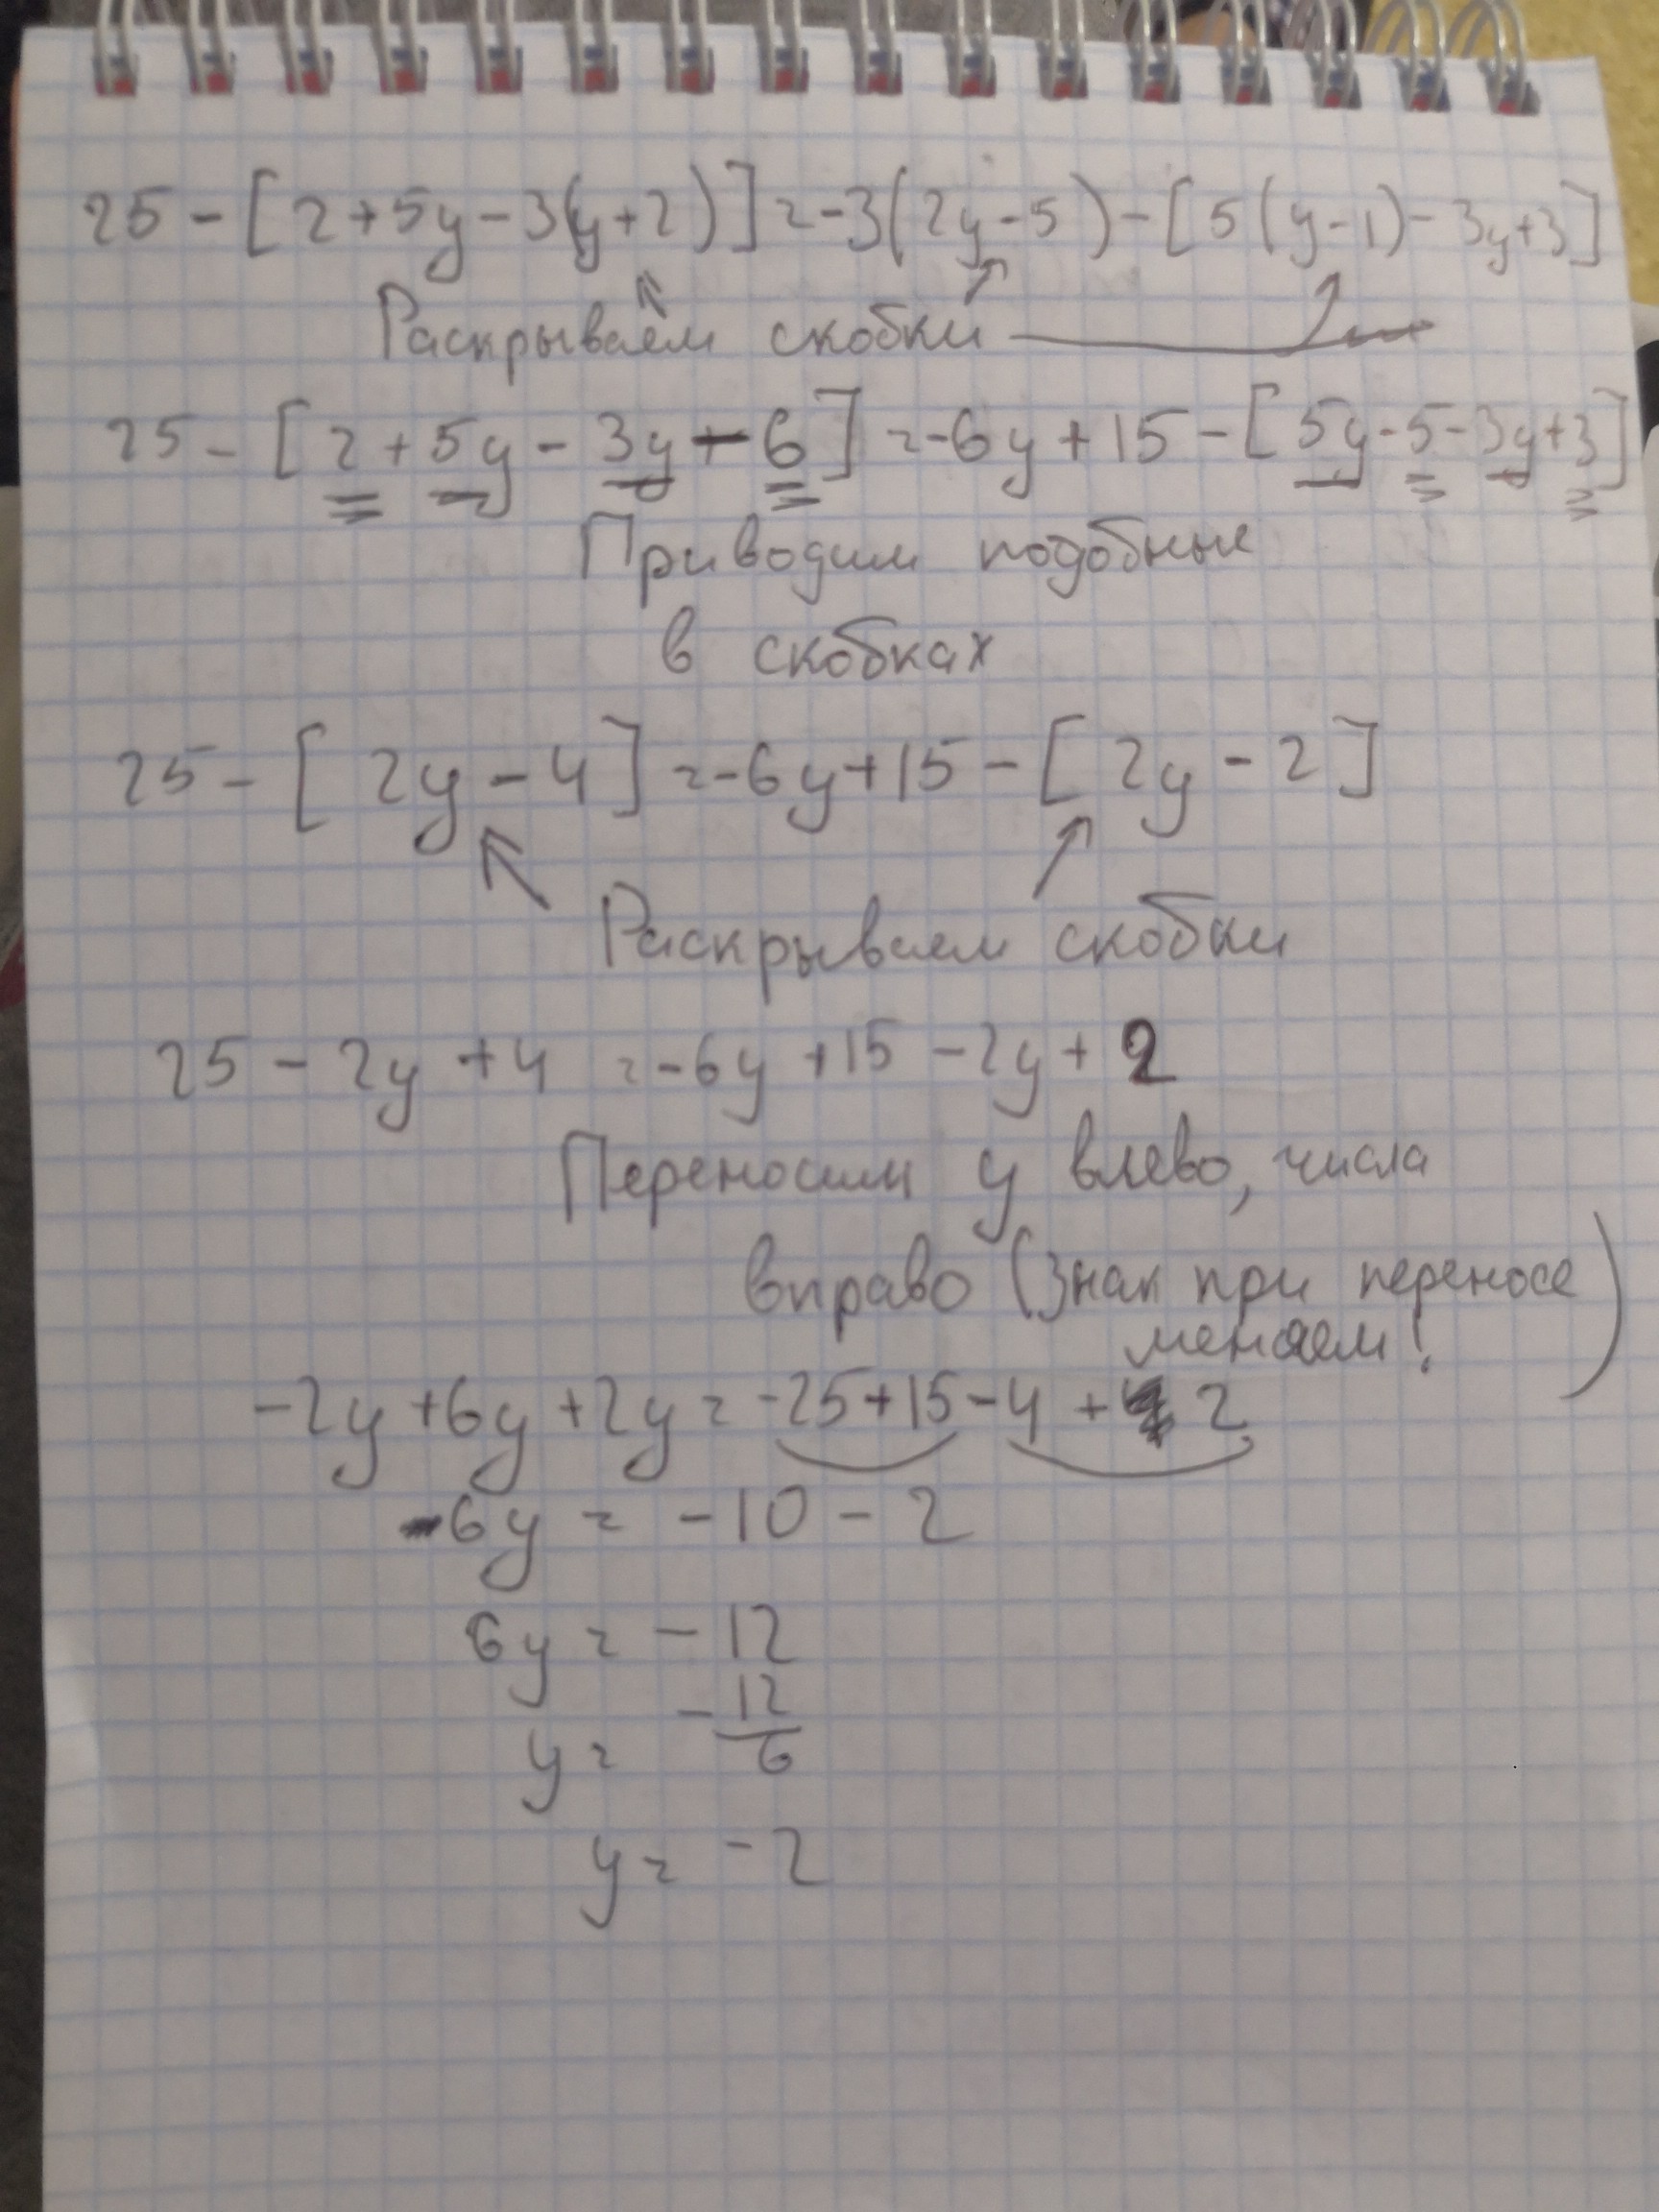 25 - [2 + 5y - 3(y+2)] = -3(2y - 5) - [5(y-1) - 3y+3]
Раскрываем скобки
25 - [2 + 5y - 3y - 6] = -6y + 15 - [5y - 5 - 3y + 3]
Приводим подобные
в скобках
25 - [2y - 4] = -6y + 15 - [2y - 2]
Раскрываем скобки
25 - 2y + 4 = -6y + 15 - 2y + 2
Переносим y влево, числа
вправо (Знак при переносе
меняем!)
-2y + 6y + 2y = -25 + 15 - 4 + 2
6y = -10 - 2
6y = -12
y = -12/6
y = -2